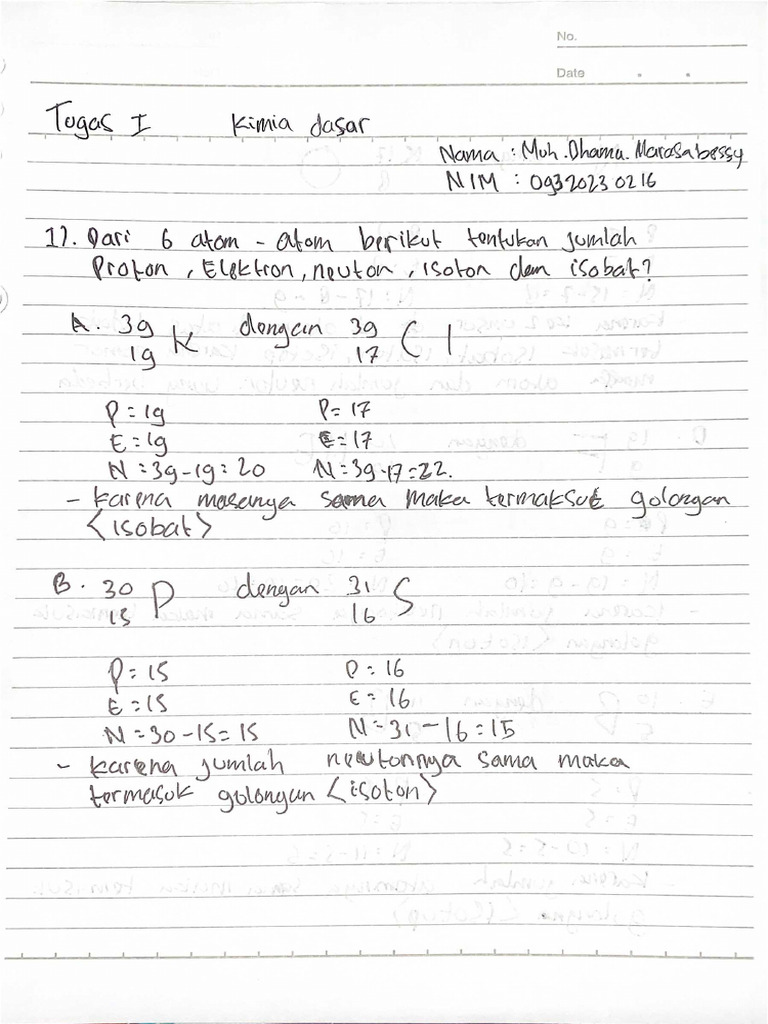 No.
Date
Tugas I Kimia dasar
Nama : Muh.Dhama.Marasabessy
NIM : 09320230216
17. Dari 6 atom - atom berikut tentukan jumlah
Proton, Elektron, neuton, isoton dan isobat?
A. 39 19 K dengan 39 17 Cl
P = 19 P = 17
E = 19 E = 17
N = 39-19 = 20 N = 39-17 = 22.
- karena masanya sama maka termaksuk golongan
<isobat>
B. 30 15 P dengan 31 16 S
P = 15 P = 16
E = 15 E = 16
N = 30-15 = 15 N = 31-16 = 15
- karena jumlah neutonnya sama maka
termasuk golongan <isoton>